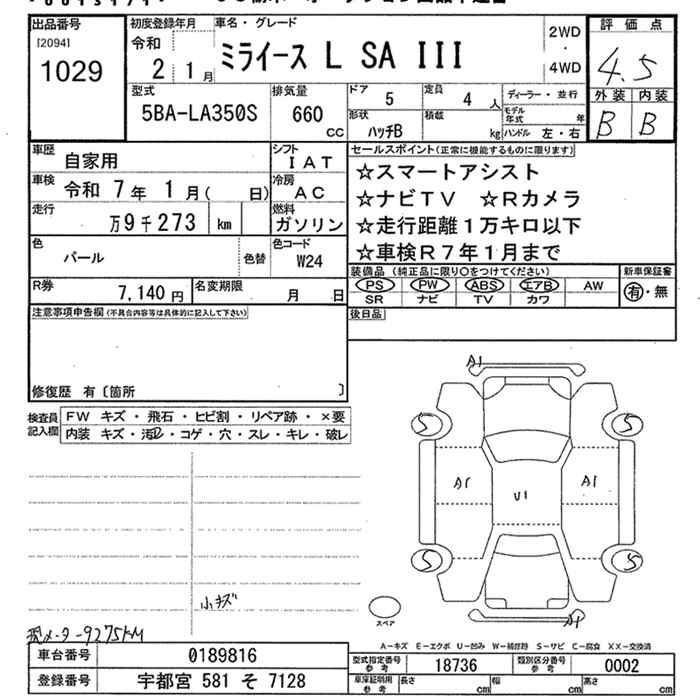 出品番号 初度登録年月 車名・グレード 2WD・4WD 評価点
[2094] 1029 令和 2 1月 ミライース L SA III 4.5
型式 5BA-LA350S 排気量 660 CC
ドア 5 定員 4 人 ディーラー・並行 外装 内装
形状 ハッチB 積載 kg モデル年式 年 ハンドル 左・右 B B
車歴 自家用 シフト IAT セールスポイント(正常に機能するものに限ります)
車検 令和 7年 1月( 日) 冷房 AC
☆スマートアシスト
☆ナビTV ☆Rカメラ
走行 万9千273 km 燃料 ガソリン
☆走行距離1万キロ以下
色 パール 色替 色コード W24
☆車検R7年1月まで
装備品 (純正品に限り○をつけてください) 新車保証書
R券 7,140円 名変期限 月 日
PS PW ABS エアB AW 有・無
SR ナビ TV カワ
注意事項申告欄(不具合内容等は具体的に記入して下さい) 後日品
修復歴 有〔箇所 〕
検査員記入欄 FW キズ・飛石・ヒビ割・リペア跡・×要
内装 キズ・汚・コゲ・穴・スレ・キレ・破レ
A1
S S
A1 U1 A1
S S
A1
小キズ
スペア
現メーター9275KM
A-キズ E-エクボ U-凹み W-補修跡 S-サビ C-腐食 XX-交換済
車台番号 0189816 型式指定番号 参考 18736 類別区分番号 参考 0002
登録番号 宇都宮 581 そ 7128 車庫証明用 参考 長さ cm 幅 cm 高さ cm